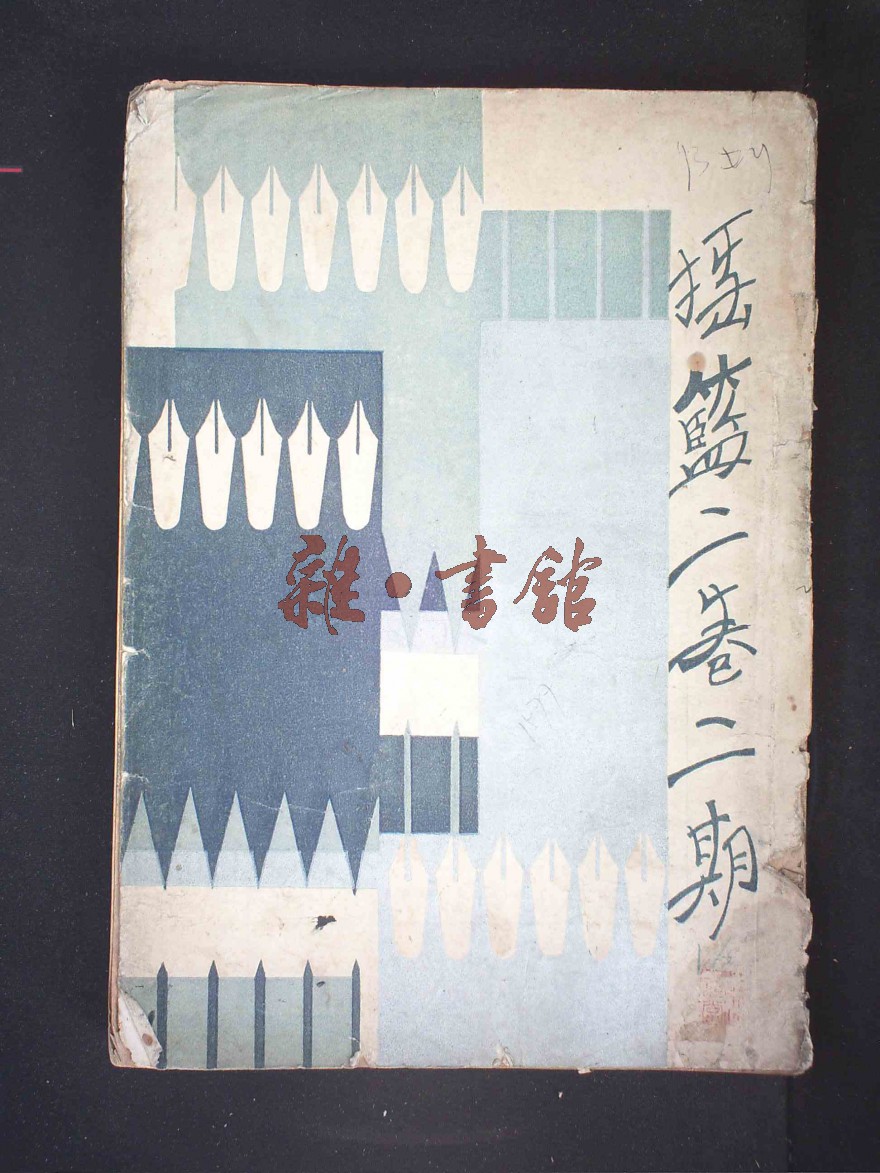 搖籃二卷二期
雜·書館